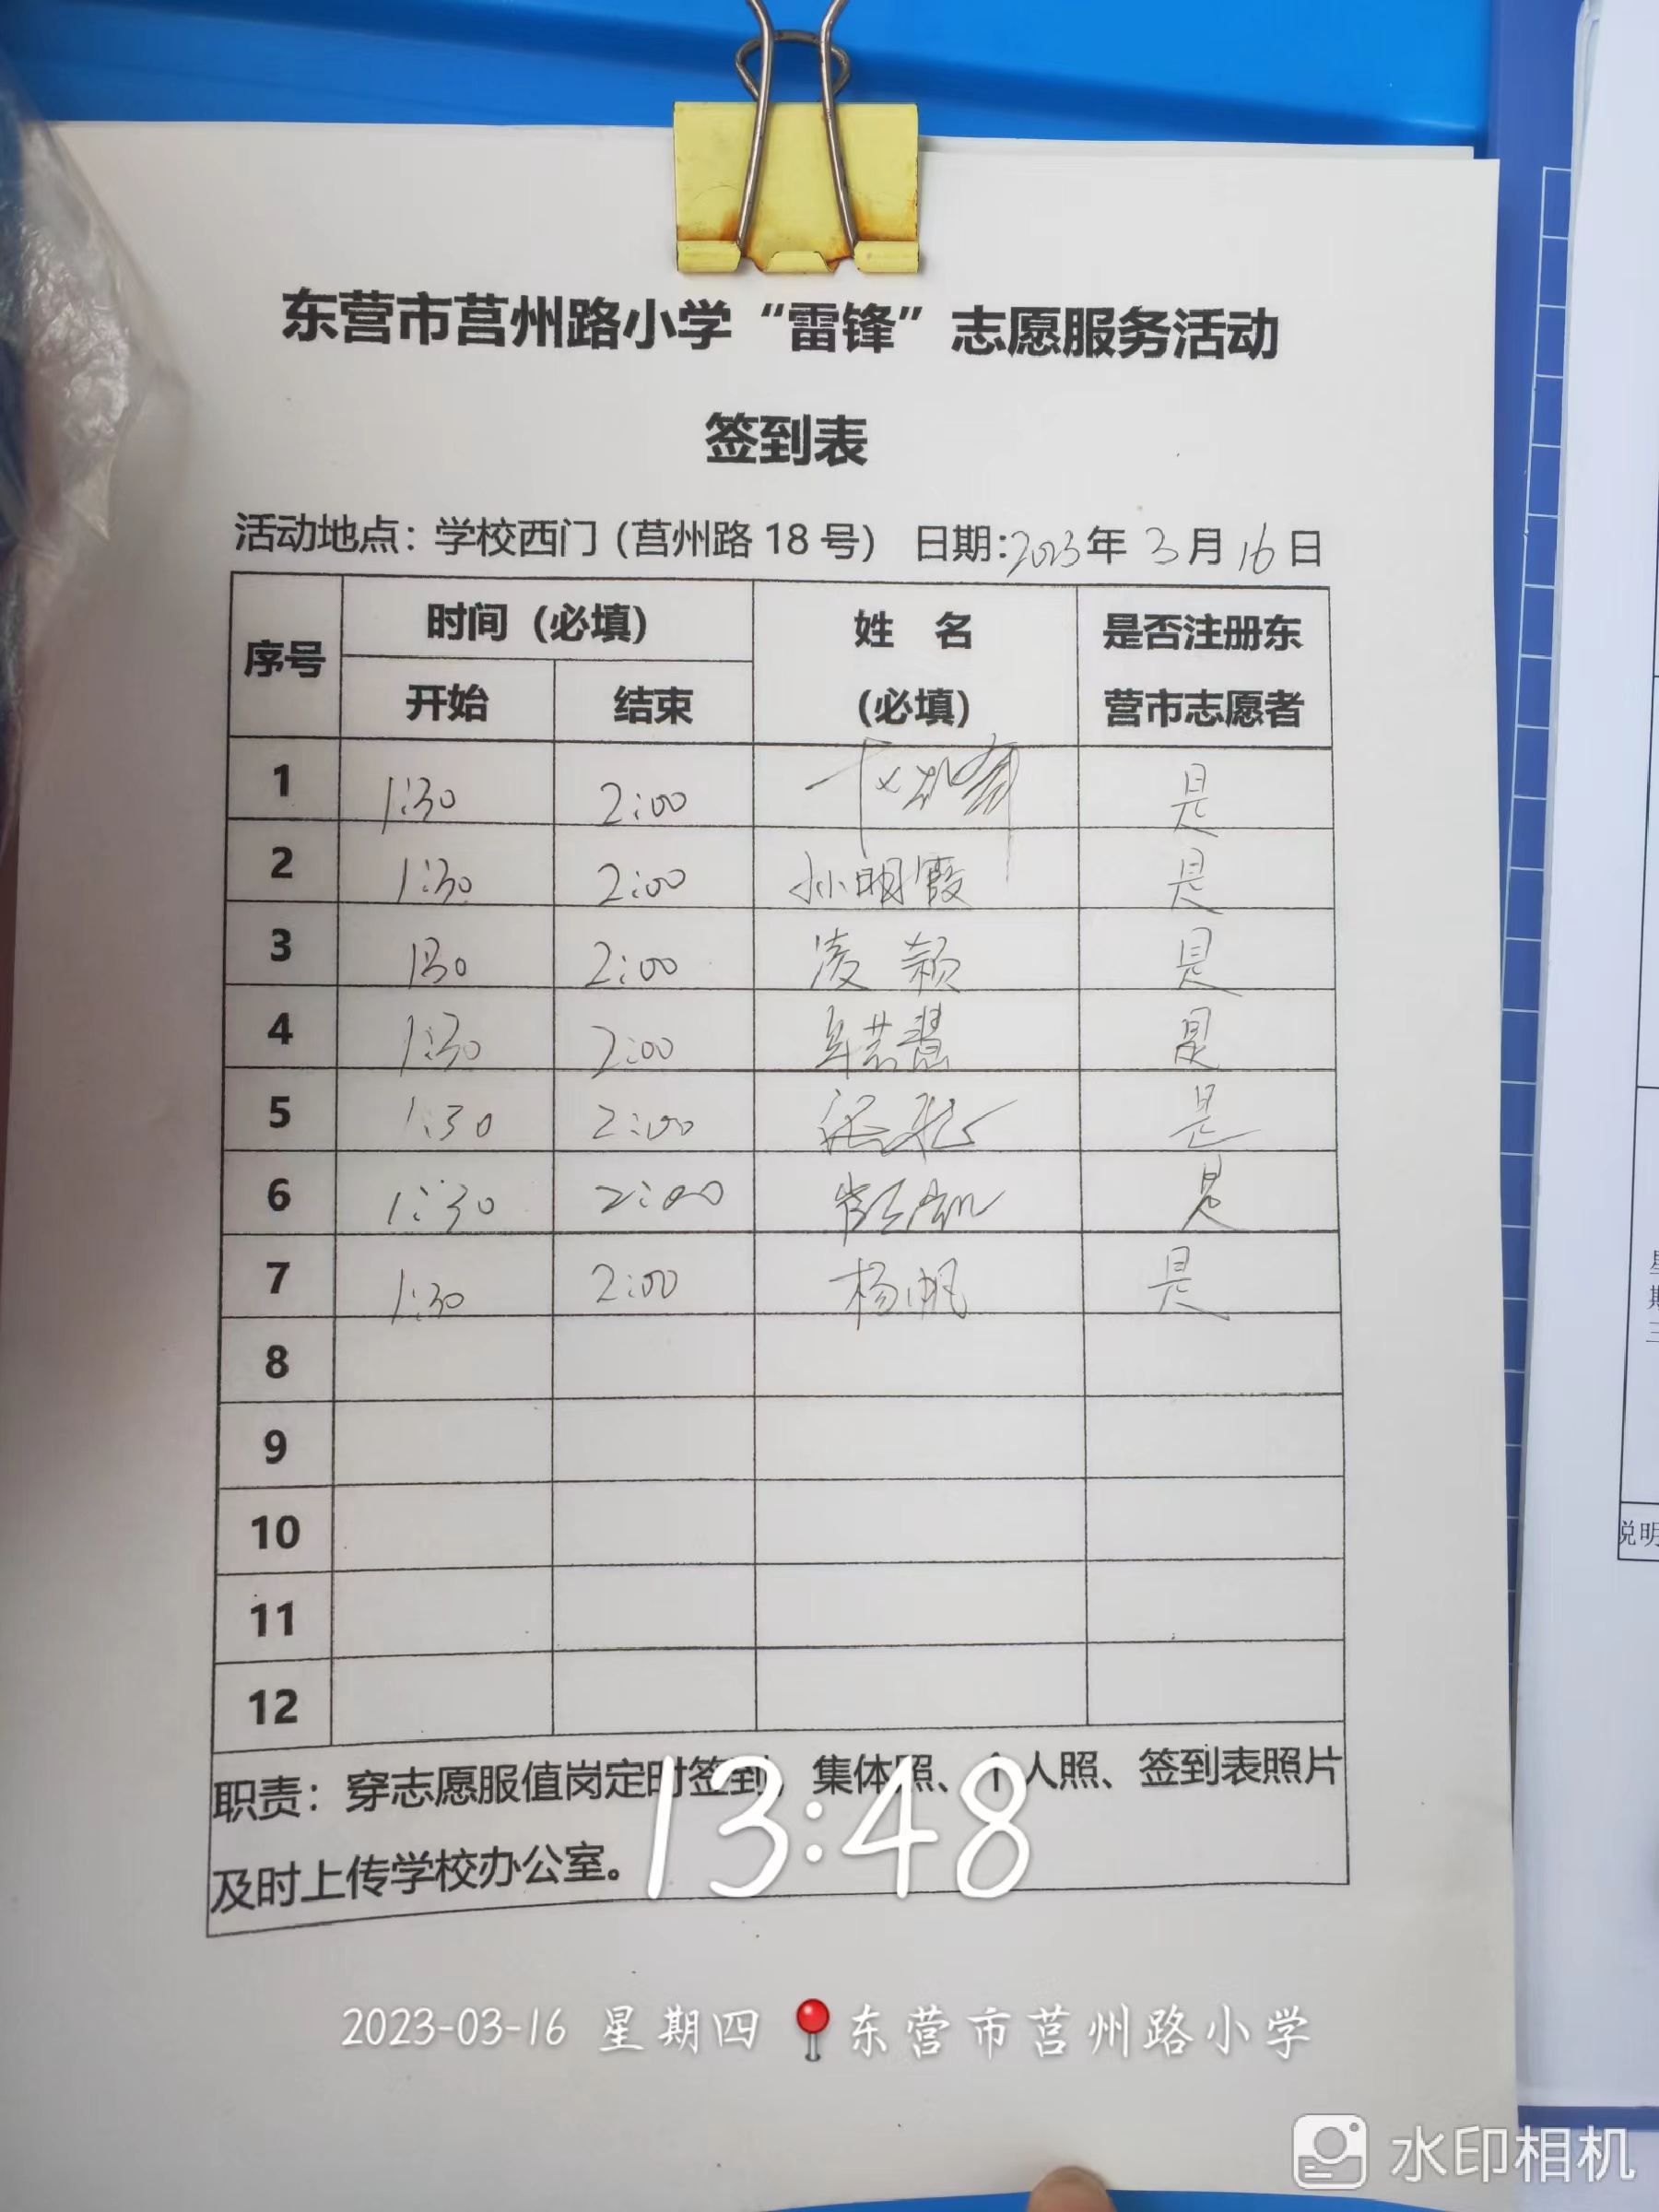 东营市莒州路小学“雷锋”志愿服务活动
签到表
活动地点：学校西门（莒州路 18 号） 日期：2023年 3月 16日
序号 时间（必填） 姓 名 是否注册东
开始 结束 （必填） 营市志愿者
1 1:30 2:00 是
2 1:30 2:00 孙明霞 是
3 1:30 2:00 凌颖 是
4 1:30 2:00 是
5 1:30 2:00 是
6 1:30 2:00 是
7 1:30 2:00 杨帆 是
8
9
10
11
12
职责：穿志愿服值岗定时签到，集体照、个人照、签到表照片
及时上传学校办公室。
13:48
2023-03-16 星期四 东营市莒州路小学
水印相机
星
期
三
说明